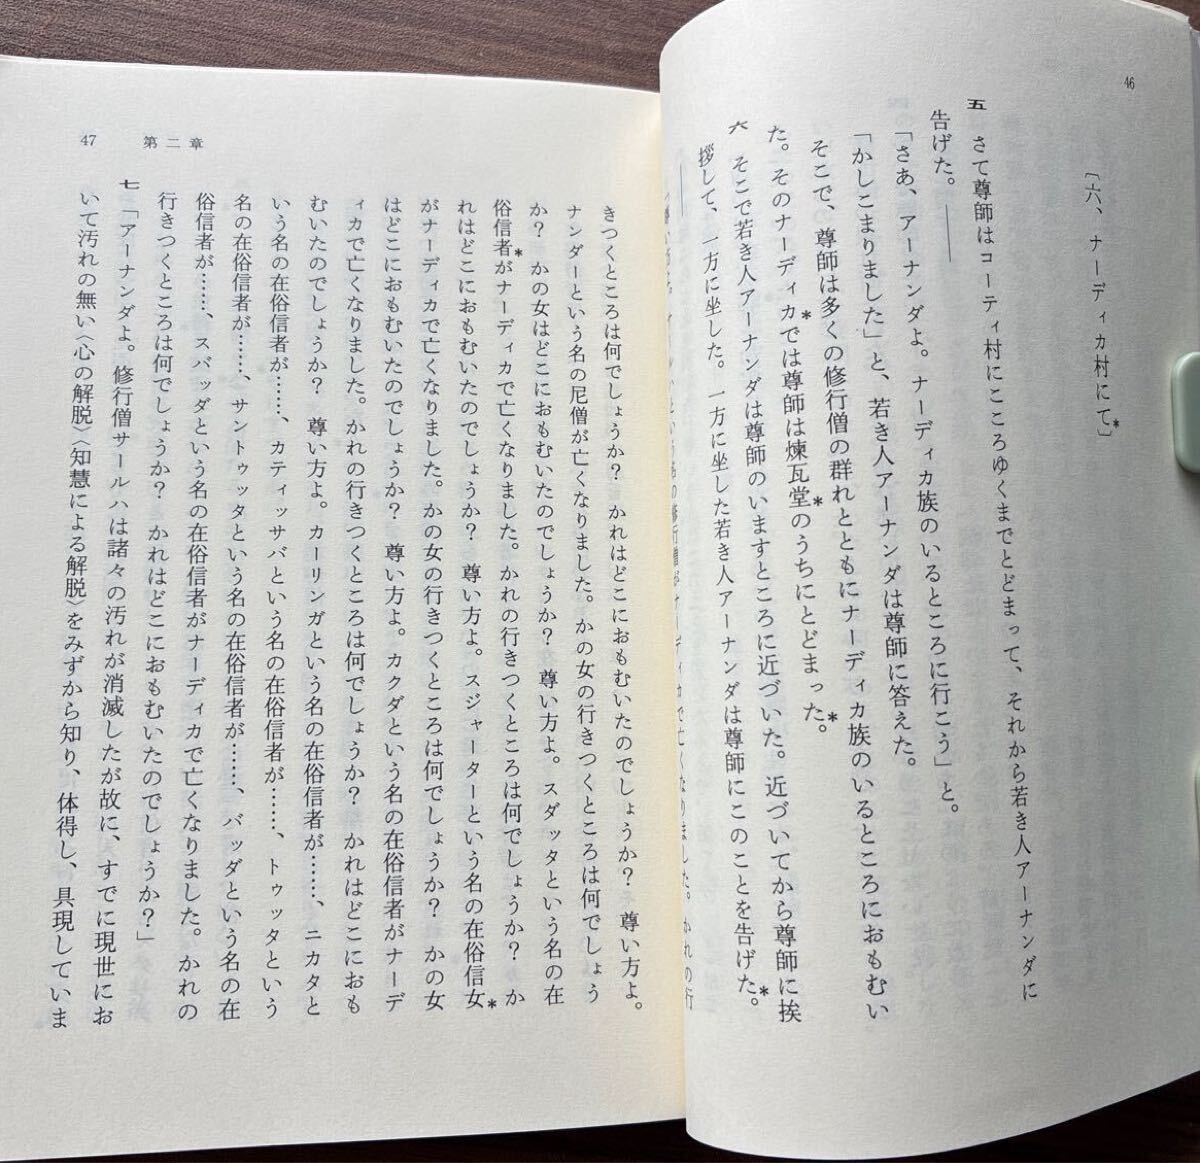 46
〔六、ナーディカ村にて*〕
五　さて尊師はコーティ村にこころゆくまでとどまって、それから若き人アーナンダに
告げた。――
「さあ、アーナンダよ。ナーディカ族のいるところに行こう」と。
「かしこまりました」と、若き人アーナンダは尊師に答えた。
そこで、尊師は多くの修行僧の群れとともにナーディカ族のいるところにおもむい
た。そのナーディカ*では尊師は煉瓦堂*のうちにとどまった*。
六　そこで若き人アーナンダは尊師のいますところに近づいた。近づいてから尊師に挨
拶して、一方に坐した。一方に坐した若き人アーナンダは尊師にこのことを告げた*。
――
という名の修行僧がナーディカで亡くなりました。かれの行
47
第二章
きつくところは何でしょうか？　かれはどこにおもむいたのでしょうか？　尊い方よ。
ナンダーという名の尼僧が亡くなりました。かの女の行きつくところは何でしょう
か？　かの女はどこにおもむいたのでしょうか？　尊い方よ。スダッタという名の在
俗信者*がナーディカで亡くなりました。かれの行きつくところは何でしょうか？　か
れはどこにおもむいたのでしょうか？　尊い方よ。スジャーターという名の在俗信女*
がナーディカで亡くなりました。かの女の行きつくところは何でしょうか？　かの女
はどこにおもむいたのでしょうか？　尊い方よ。カクダという名の在俗信者がナーデ
ィカで亡くなりました。かれの行きつくところは何でしょうか？　かれはどこにおも
むいたのでしょうか？　尊い方よ。カーリンガという名の在俗信者が……、ニカタと
いう名の在俗信者が……、カティッサバという名の在俗信者が……、トゥッタという
名の在俗信者が……、サントゥッタという名の在俗信者が……、バッダという名の在
俗信者が……、スバッダという名の在俗信者がナーディカで亡くなりました。かれの
行きつくところは何でしょうか？　かれはどこにおもむいたのでしょうか？」
七　「アーナンダよ。修行僧サールハは諸々の汚れが消滅したが故に、すでに現世にお
いて汚れの無い〈心の解脱〉〈知慧による解脱〉をみずから知り、体得し、具現していま